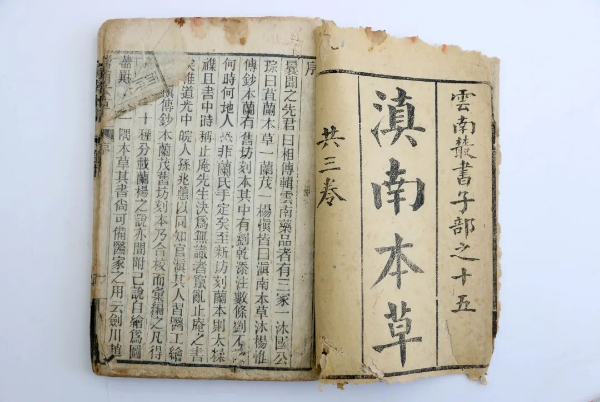 雲南叢書子部之十五
滇南本草
共三卷
序
曩聞之先君曰相傳輯雲南藥品者有三家一沐國公
琮曰苴蘭本草一蘭茂一楊慎皆曰滇南本草沐楊惟
傳鈔本蘭有舊坊刻本其中有劉乾添注數條劉不
何時何地人恐非蘭氏手定矣至新坊刻蘭本則太採
襍且書中時稱止庵先生決爲無識者竄亂止庵之書
矣惟道光中皖人孫兆蕙以同知官滇其人習醫工繪
傳鈔本蘭茂舊坊刻本乃合校而彙編之凡得
十種分載蘭楊之說亦間附己說自繪爲圖
隅本草其書尚可備醫家之用云劍川趙